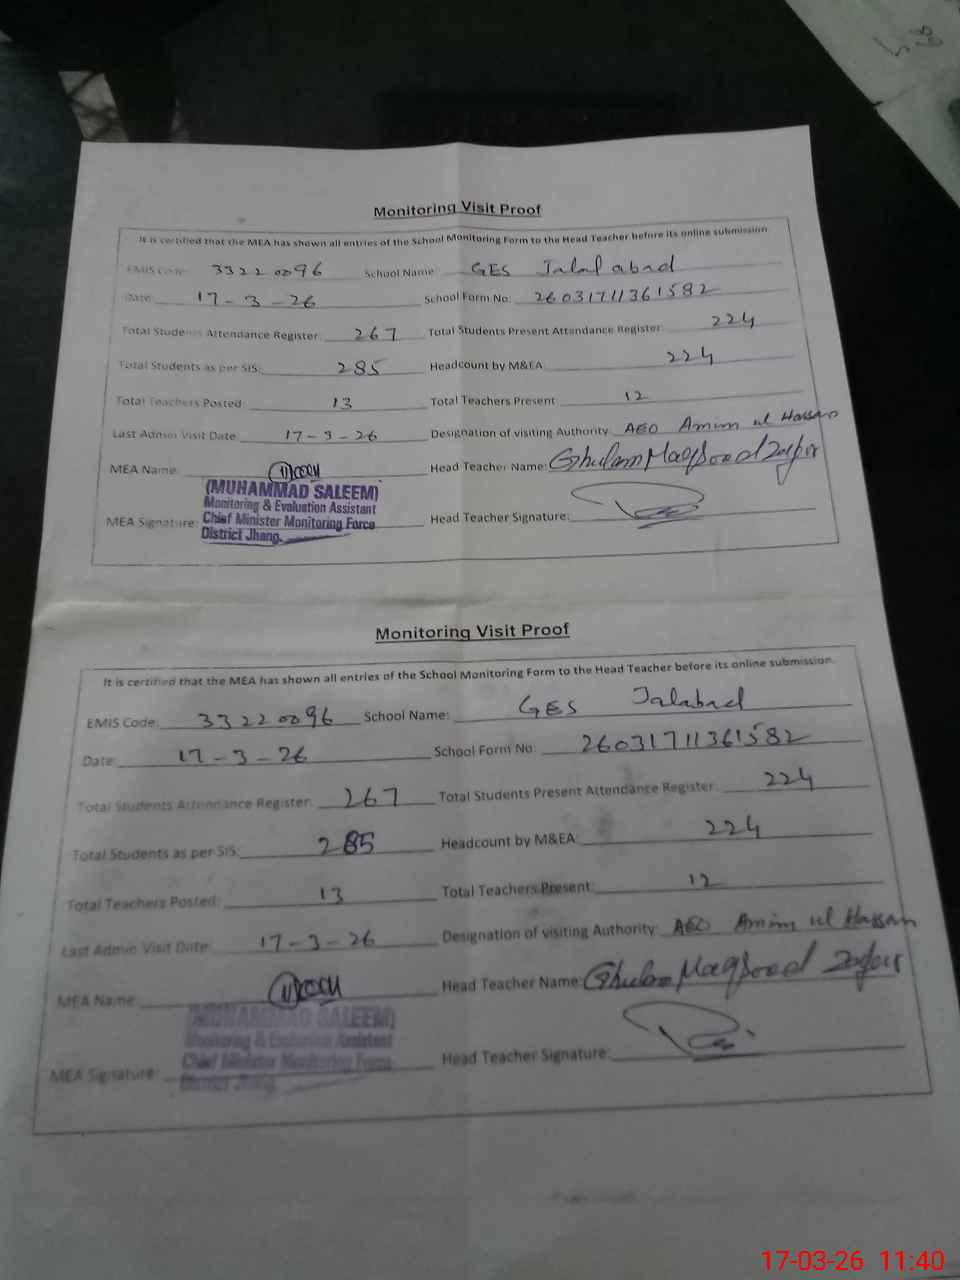 Monitoring Visit Proof
It is certified that the MEA has shown all entries of the School Monitoring Form to the Head Teacher before its online submission.
EMIS Code: 33220096 School Name: GES Jalalabad
Date: 17-3-26 School Form No: 26031711361582
Total Students Attendance Register: 267 Total Students Present Attendance Register: 224
Total Students as per SIS: 285 Headcount by M&EA: 224
Total Teachers Posted: 13 Total Teachers Present: 12
Last Admin Visit Date: 17-3-26 Designation of visiting Authority: AEO Amim ul Hassan
MEA Name: Head Teacher Name: Ghulam Maqsood Zafar
(MUHAMMAD SALEEM)
Monitoring & Evaluation Assistant
MEA Signature: Chief Minister Monitoring Force Head Teacher Signature:
District Jhang.
Monitoring Visit Proof
It is certified that the MEA has shown all entries of the School Monitoring Form to the Head Teacher before its online submission.
EMIS Code: 33220096 School Name: GES Jalabad
Date: 17-3-26 School Form No: 26031711361582
Total Students Attendance Register: 267 Total Students Present Attendance Register: 224
Total Students as per SIS: 285 Headcount by M&EA: 224
Total Teachers Posted: 13 Total Teachers Present: 12
Last Admin Visit Date: 17-3-26 Designation of visiting Authority: AEO Amim ul Hassan
MEA Name: Head Teacher Name: Ghulam Maqsood Zafar
(MUHAMMAD SALEEM)
Monitoring & Evaluation Assistant
Chief Minister Monitoring Force
MEA Signature: District Jhang. Head Teacher Signature:
17-03-26 11:40